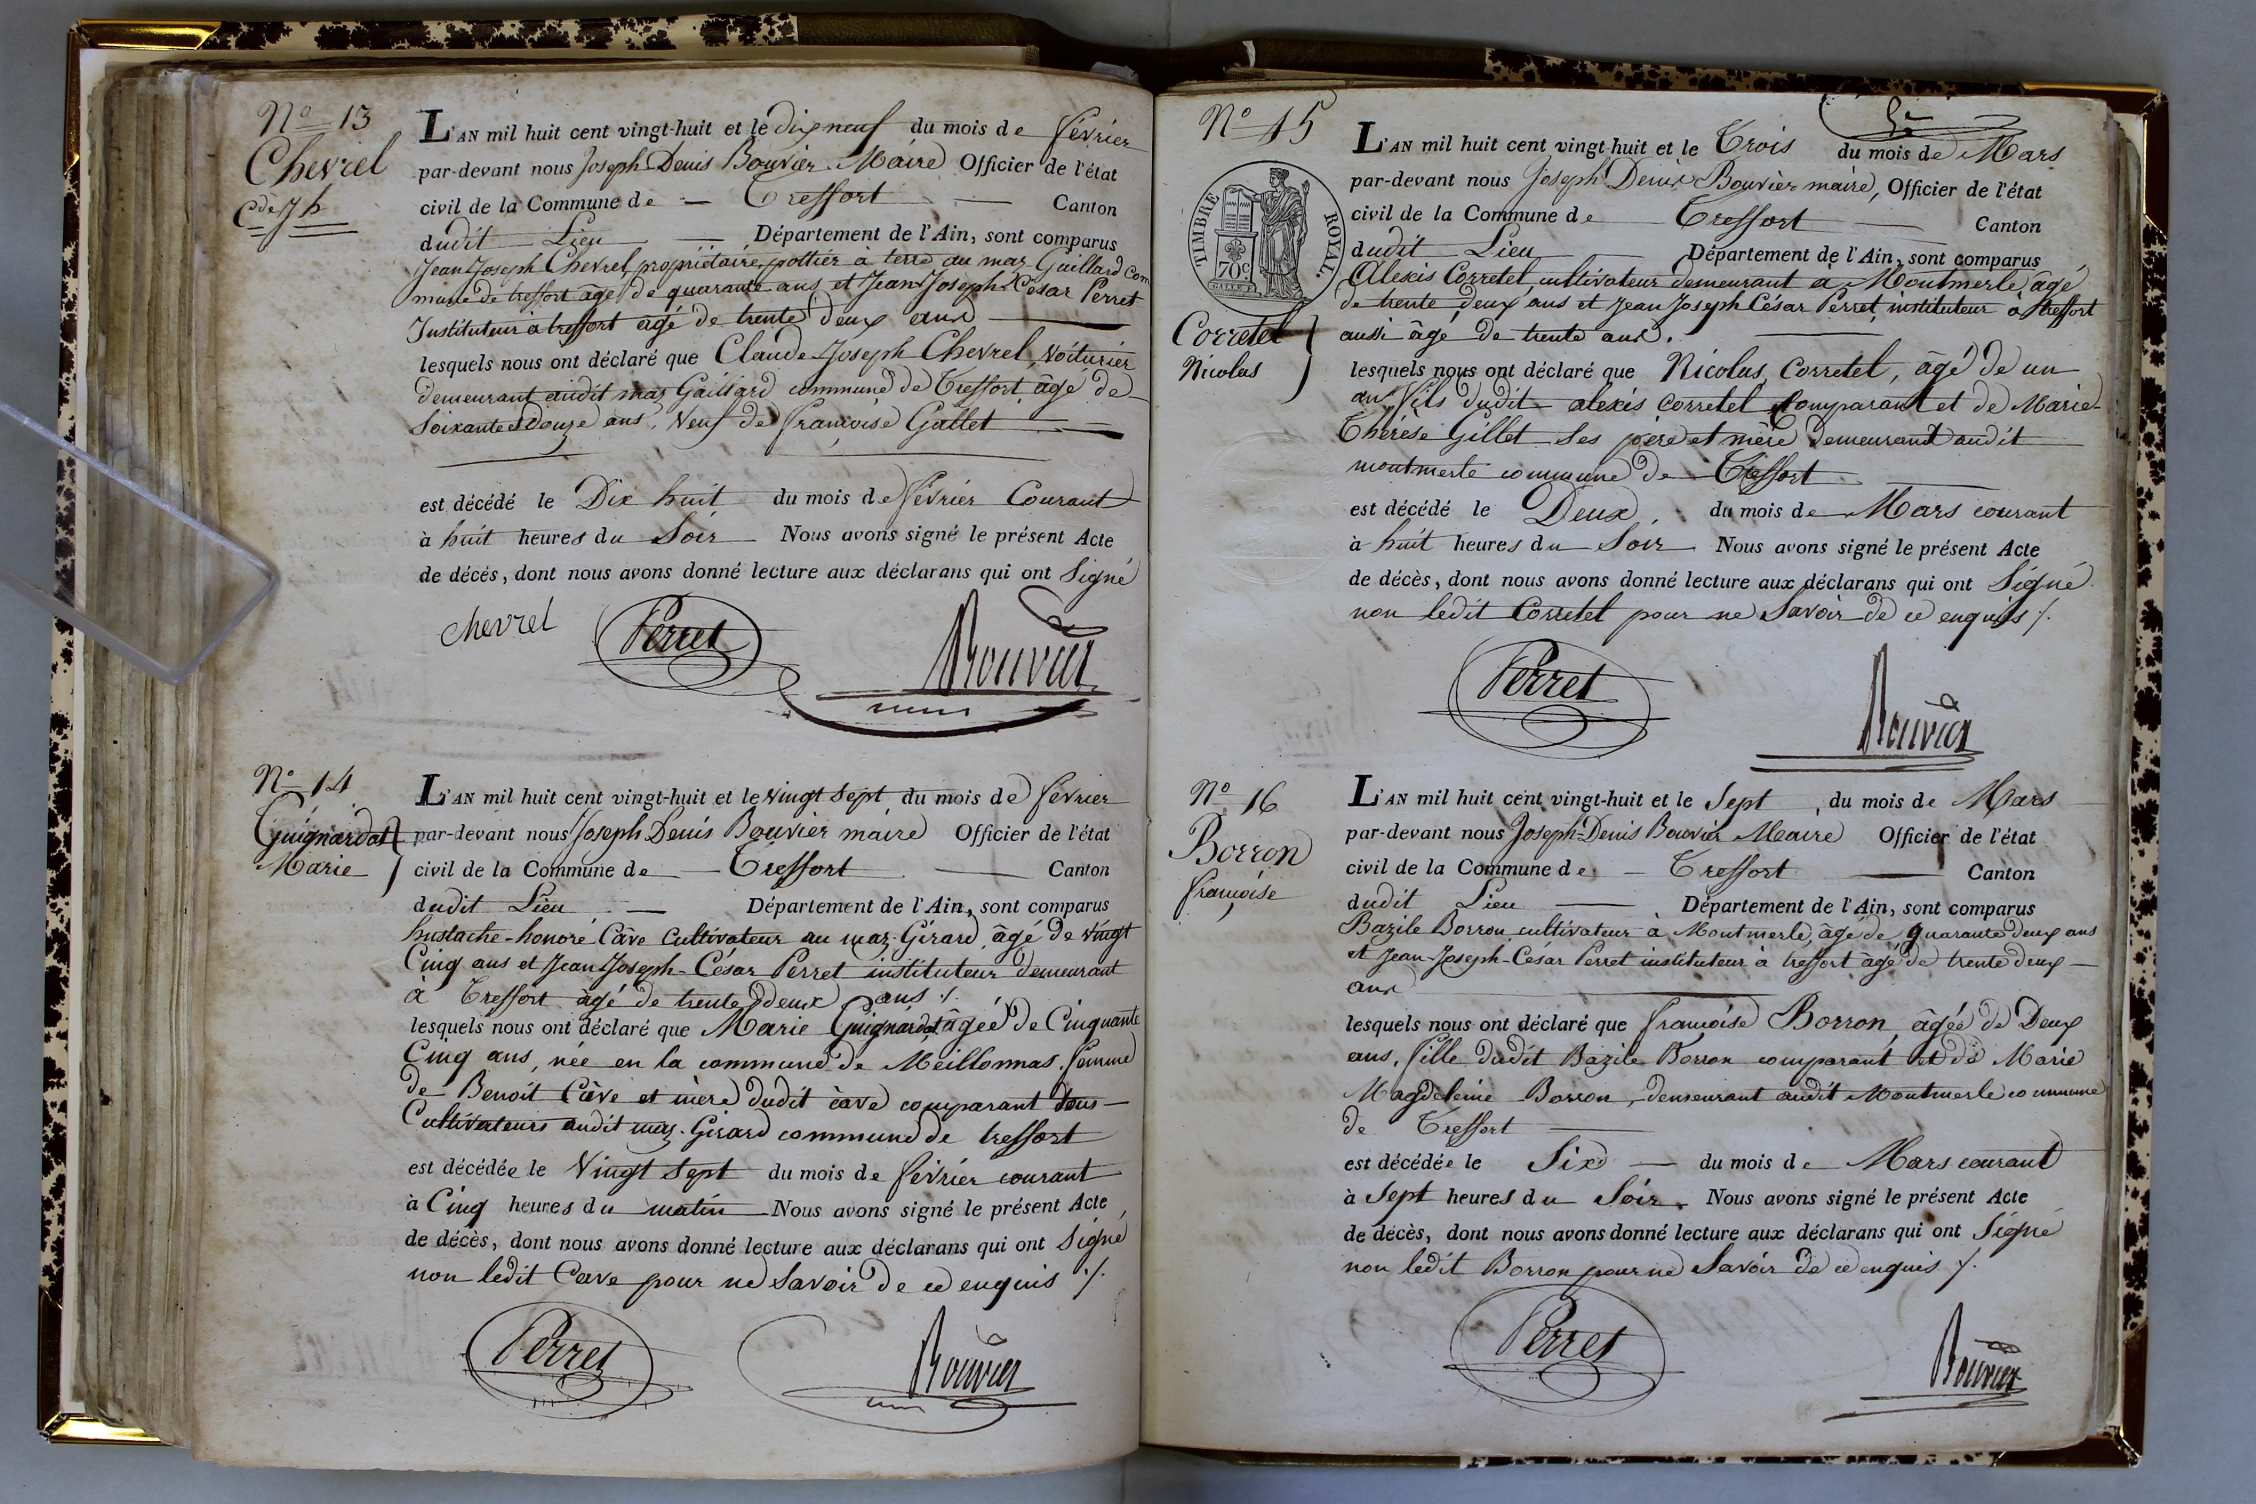 Nº 13
Chevrel
Cde Jh
L'AN mil huit cent vingt-huit et le dix neuf du mois de février
par-devant nous Joseph Denis Bouvier Maire Officier de l'état
civil de la Commune de — Treffort — Canton
dudit Lieu — Département de l'Ain, sont comparus
Jean Joseph Chevrel, propriétaire, pottier à terre au maz Gaillard com
mune de treffort âgé de quarante ans et Jean Joseph César Perret
Instituteur à treffort âgé de trente deux ans —
lesquels nous ont déclaré que Claude Joseph Chevrel, Voiturier
demeurant audit maz Gaillard commune de Treffort âgé de
soixante et Douze ans, Veuf de françoise Gallet —
est décédé le Dix huit du mois de février Courant
à huit heures du Soir Nous avons signé le présent Acte
de décès, dont nous avons donné lecture aux déclarans qui ont Signé
chevrel Perret Bouvier
Nº 14
Guignardat
Marie
L'AN mil huit cent vingt-huit et le vingt sept du mois de février
par-devant nous Joseph Denis Bouvier maire Officier de l'état
civil de la Commune de — Treffort — Canton
dudit Lieu — Département de l'Ain, sont comparus
hustache-honoré Câve Cultivateur au maz-Girard, âgé de vingt
Cinq ans et Jean Joseph-César Perret instituteur demeurant
à Treffort âgé de trente deux ans ./.
lesquels nous ont déclaré que Marie Guignardat, âgée de Cinquante
Cinq ans, née en la commune de Meillonnas, femme
de Benoit Câve et mère dudit câve comparant tous —
Cultivateurs audit maz-Girard commune de treffort
est décédée le Vingt sept du mois de février courant
à Cinq heures du matin Nous avons signé le présent Acte
de décès, dont nous avons donné lecture aux déclarans qui ont Signé
non ledit Cave pour ne Savoir de ce enquis ./.
Perret Bouvier
Nº 15
TIMBRE ROYAL.
70c
Corretel
Nicolas
L'AN mil huit cent vingt-huit et le Trois du mois de Mars
par-devant nous Joseph Denis Bouvier maire, Officier de l'état
civil de la Commune de — Treffort — Canton
dudit Lieu — Département de l'Ain, sont comparus
Alexis Corretel, cultivateur demeurant à Montmerle, âgé
de trente deux ans et Jean Joseph César Perret, instituteur à treffort
aussi âgé de trente ans. —
lesquels nous ont déclaré que Nicolas, Corretel, âgé de un
an, fils dudit alexis Corretel comparant et de Marie-
Thérèse Gillet ses père et mère demeurant audit
montmerle commune de Treffort —
est décédé le Deux, du mois de Mars courant
à huit heures du Soir Nous avons signé le présent Acte
de décès, dont nous avons donné lecture aux déclarans qui ont Signé
non ledit Corretel pour ne Savoir de ce enquis ./.
Perret Bouvier
Nº 16
Borron
françoise
L'AN mil huit cent vingt-huit et le Sept du mois de Mars
par-devant nous Joseph-Denis Bouvier Maire Officier de l'état
civil de la Commune de — Treffort — Canton
dudit Lieu — Département de l'Ain, sont comparus
Bazile Borron, cultivateur à Montmerle, âgé de quarante deux ans
et Jean-Joseph-César Perret instituteur à treffort âgé de trente deux —
ans —
lesquels nous ont déclaré que françoise Borron, âgée de Deux
ans, fille dudit Bazile Borron comparant et de Marie
Magdeleine Borron, demeurant audit Montmerle commune
de Treffort —
est décédée le Six — du mois de Mars courant
à Sept heures du Soir. Nous avons signé le présent Acte
de décès, dont nous avons donné lecture aux déclarans qui ont Signé
non ledit Borron pour ne Savoir de ce enquis ./.
Perret Bouvier